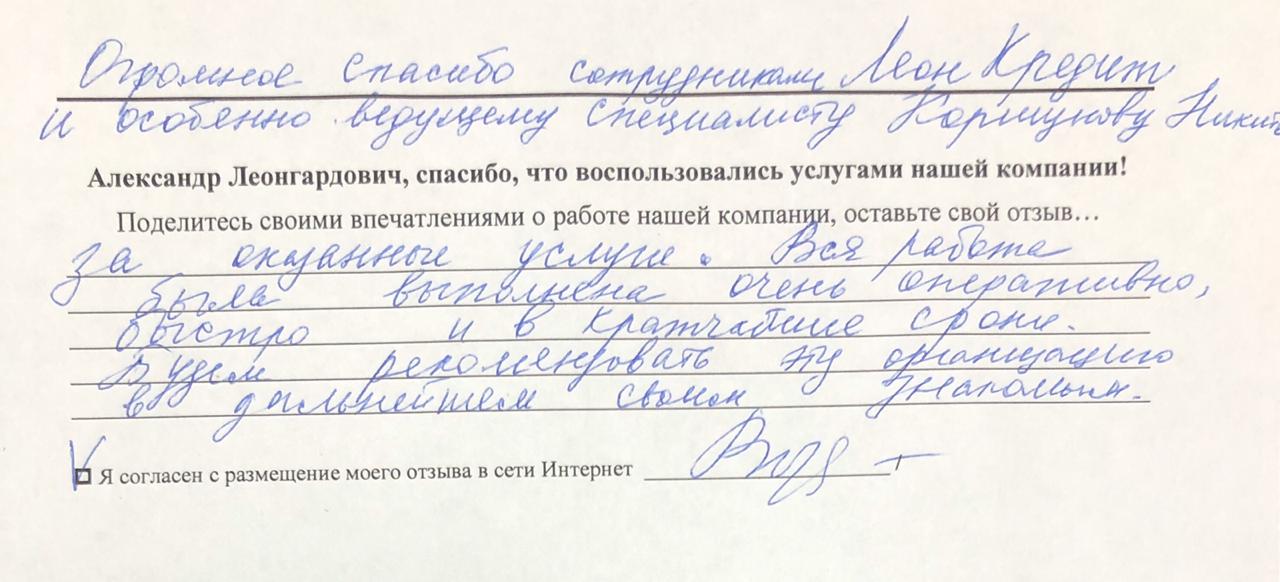 Огромное спасибо сотрудникам Леон Кредит
и особенно ведущему специалисту Коршунову Никит
Александр Леонгардович, спасибо, что воспользовались услугами нашей компании!
Поделитесь своими впечатлениями о работе нашей компании, оставьте свой отзыв…
за оказанные услуги. Вся работа
была выполнена очень оперативно,
быстро и в кратчайшие сроки.
Будем рекомендовать эту организацию
в дальнейшем своим знакомым.
Я согласен с размещение моего отзыва в сети Интернет